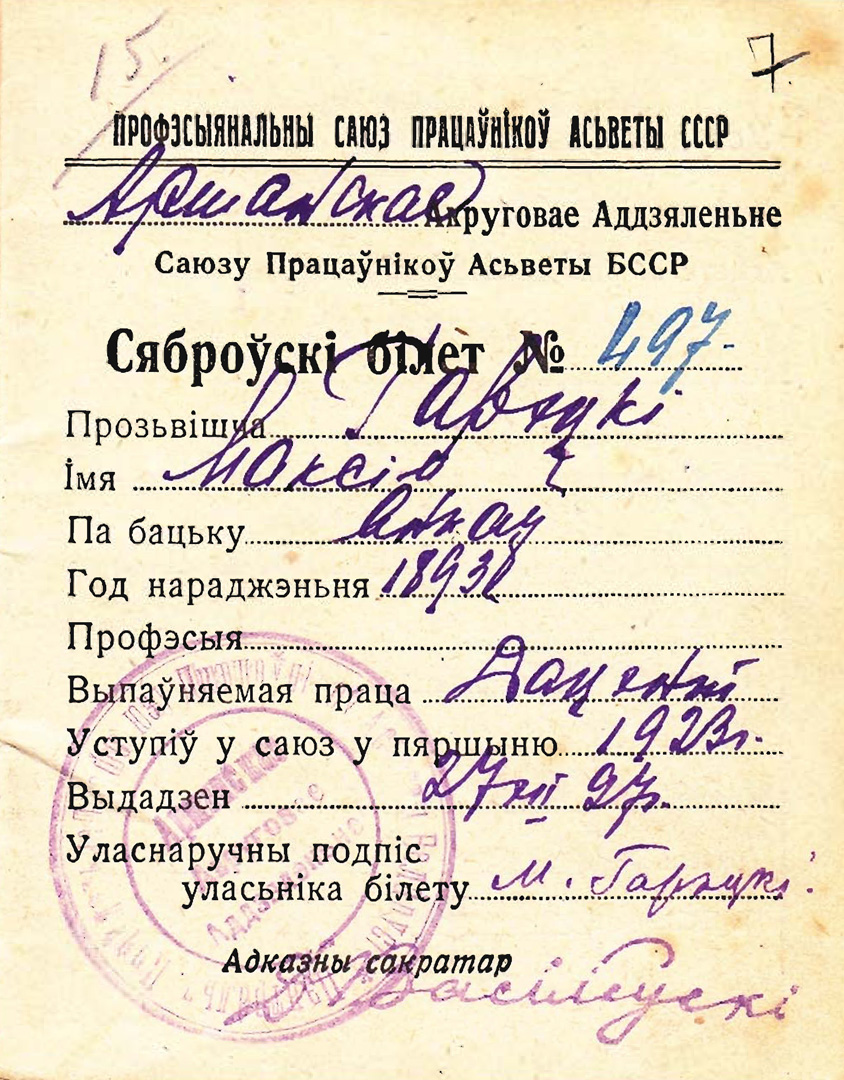 15.
7.
ПРОФЭСЫЯНАЛЬНЫ САЮЗ ПРАЦАЎНІКОЎ АСЬВЕТЫ СССР
Аршанскае Акруговае Аддзяленьне
Саюзу Працаўнікоў Асьветы БССР
Сяброўскі білет № 497.
Прозьвішча Гарэцкі
Імя Максім
Па бацьку Іванав.
Год нараджэньня 1893
Профэсыя
Выпаўняемая праца Дацэнт
Уступіў у саюз у пяршыню 1923 г.
Выдадзен 27 27 г.
Уласнаручны подпіс
уласьніка білету М. Гарэцкі.
Адказны сакратар
Акруговае
Аддзяленьне